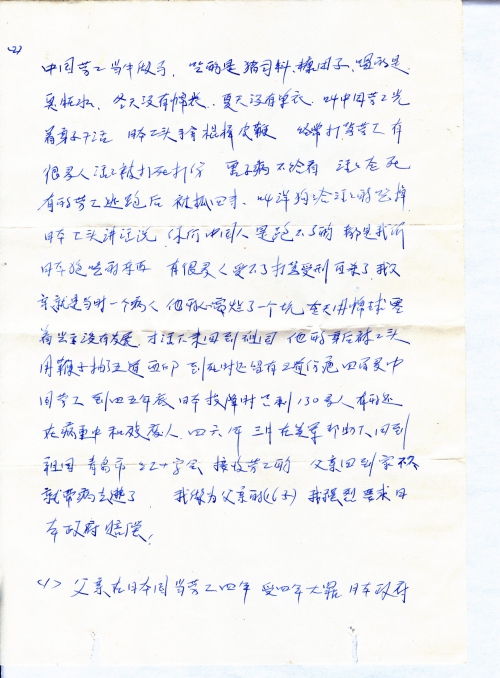 (2)
中国劳工当牛做马，吃的是猪司料、糠团子、喝的是
臭水，冬天没有棉衣，夏天没有单衣，叫中国劳工光
着身子干活 日本工头手拿棍棒皮鞭 经常打骂劳工有
很多人活活被打死打伤 害了病不给看 活活 死
有的劳工逃跑后 被抓回来，叫洋狗 活活的 掉
日本工头讲话说，你们中国人是跑不了的 都是我们
日本 的东西 有很多人受不了打骂受刑 了 我父
亲就是当时一个病人 他的心 烂了一个坑 冬天用棉球塞
着 没有发展 才活下来回到祖国 他的身后被工头
用鞭子抽了三道血印 到死时还留有三道伤疤 四百多中
国劳工 到四五年底 日本投降时 剩130多人 有的还
在病重中和残废人，四六年三月在美军帮助下回到
祖国 青岛市 红十字会 接收劳工的 父亲回到家不久
就带病去逝了 我做为父亲的( 子) 我强烈要求日
本政府赔偿，
(1) 父亲在日本国当劳工四年 受四年大罪 日本政府